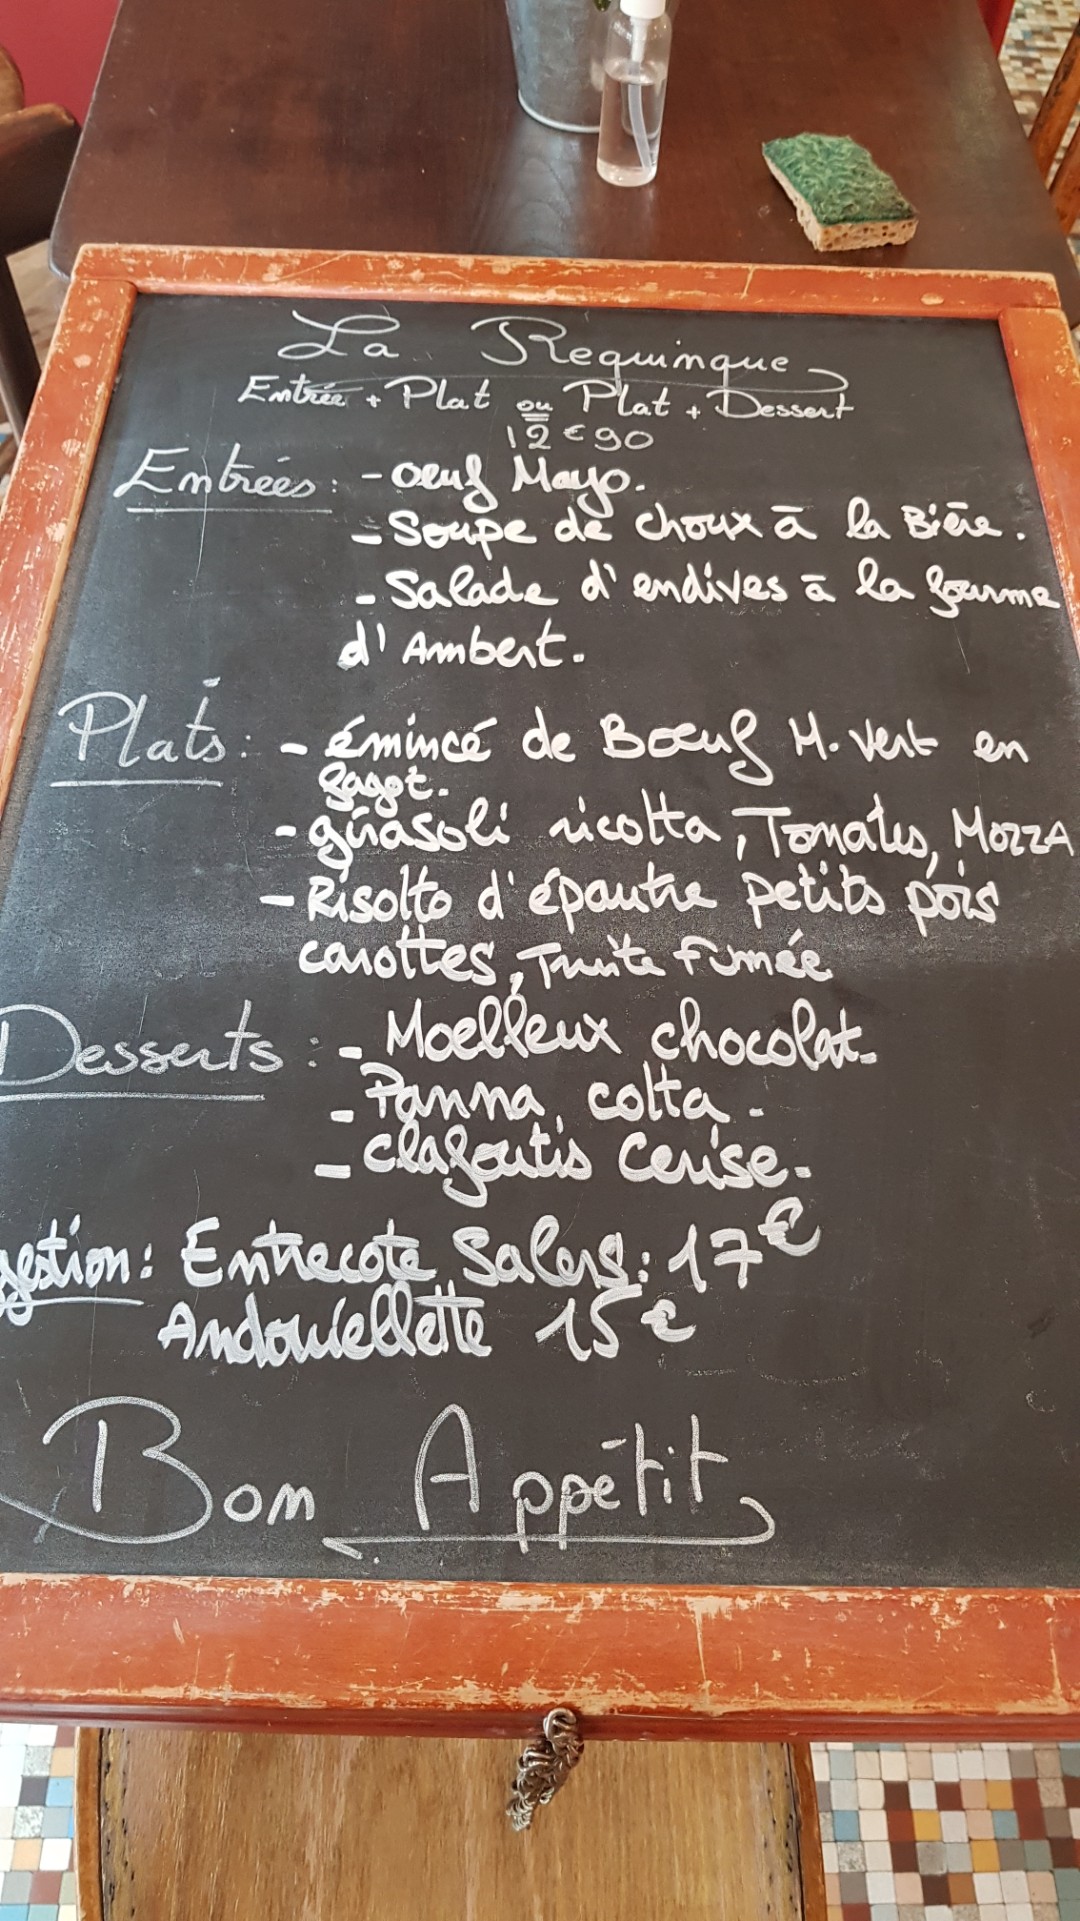 La Requinque
Entrée + Plat ou Plat + Dessert
12€90
Entrées : - oeuf Mayo.
- Soupe de choux à la Bière.
- Salade d'endives à la fourme
d'Ambert.
Plats : - émincé de Boeuf H. vert en
fagot.
- girasoli ricotta, Tomates, MOZZA
- Risotto d'épautre petits pois
carottes, Truite fumée
Desserts : - Moelleux chocolat.
- Panna cotta.
- Clafoutis Cerise.
gestion : Entrecote Salers : 17€
Andouiellette 15€
Bon Appétit